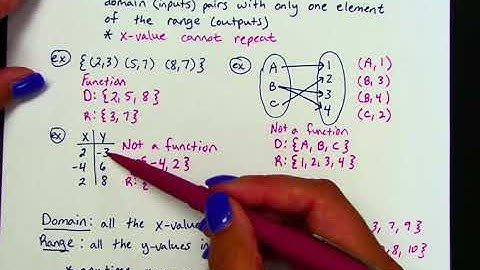 domain (inputs) pairs with only one element
of the range (outputs)
* x-value cannot repeat
ex {(2,3) (5,7) (8,7)}
Function
D: {2, 5, 8}
R: {3, 7}
ex
A
B
C
1
2
3
4
(A, 1)
(B, 3)
(B, 4)
(C, 2)
Not a function
D: {A, B, C}
R: {1, 2, 3, 4}
ex
X Y
2 -3
-4 6
2 8
Not a function
-4, 2}
R: {
Domain: all the x-value
3, 7, 9}
Range: all the y-values in
8, 10}